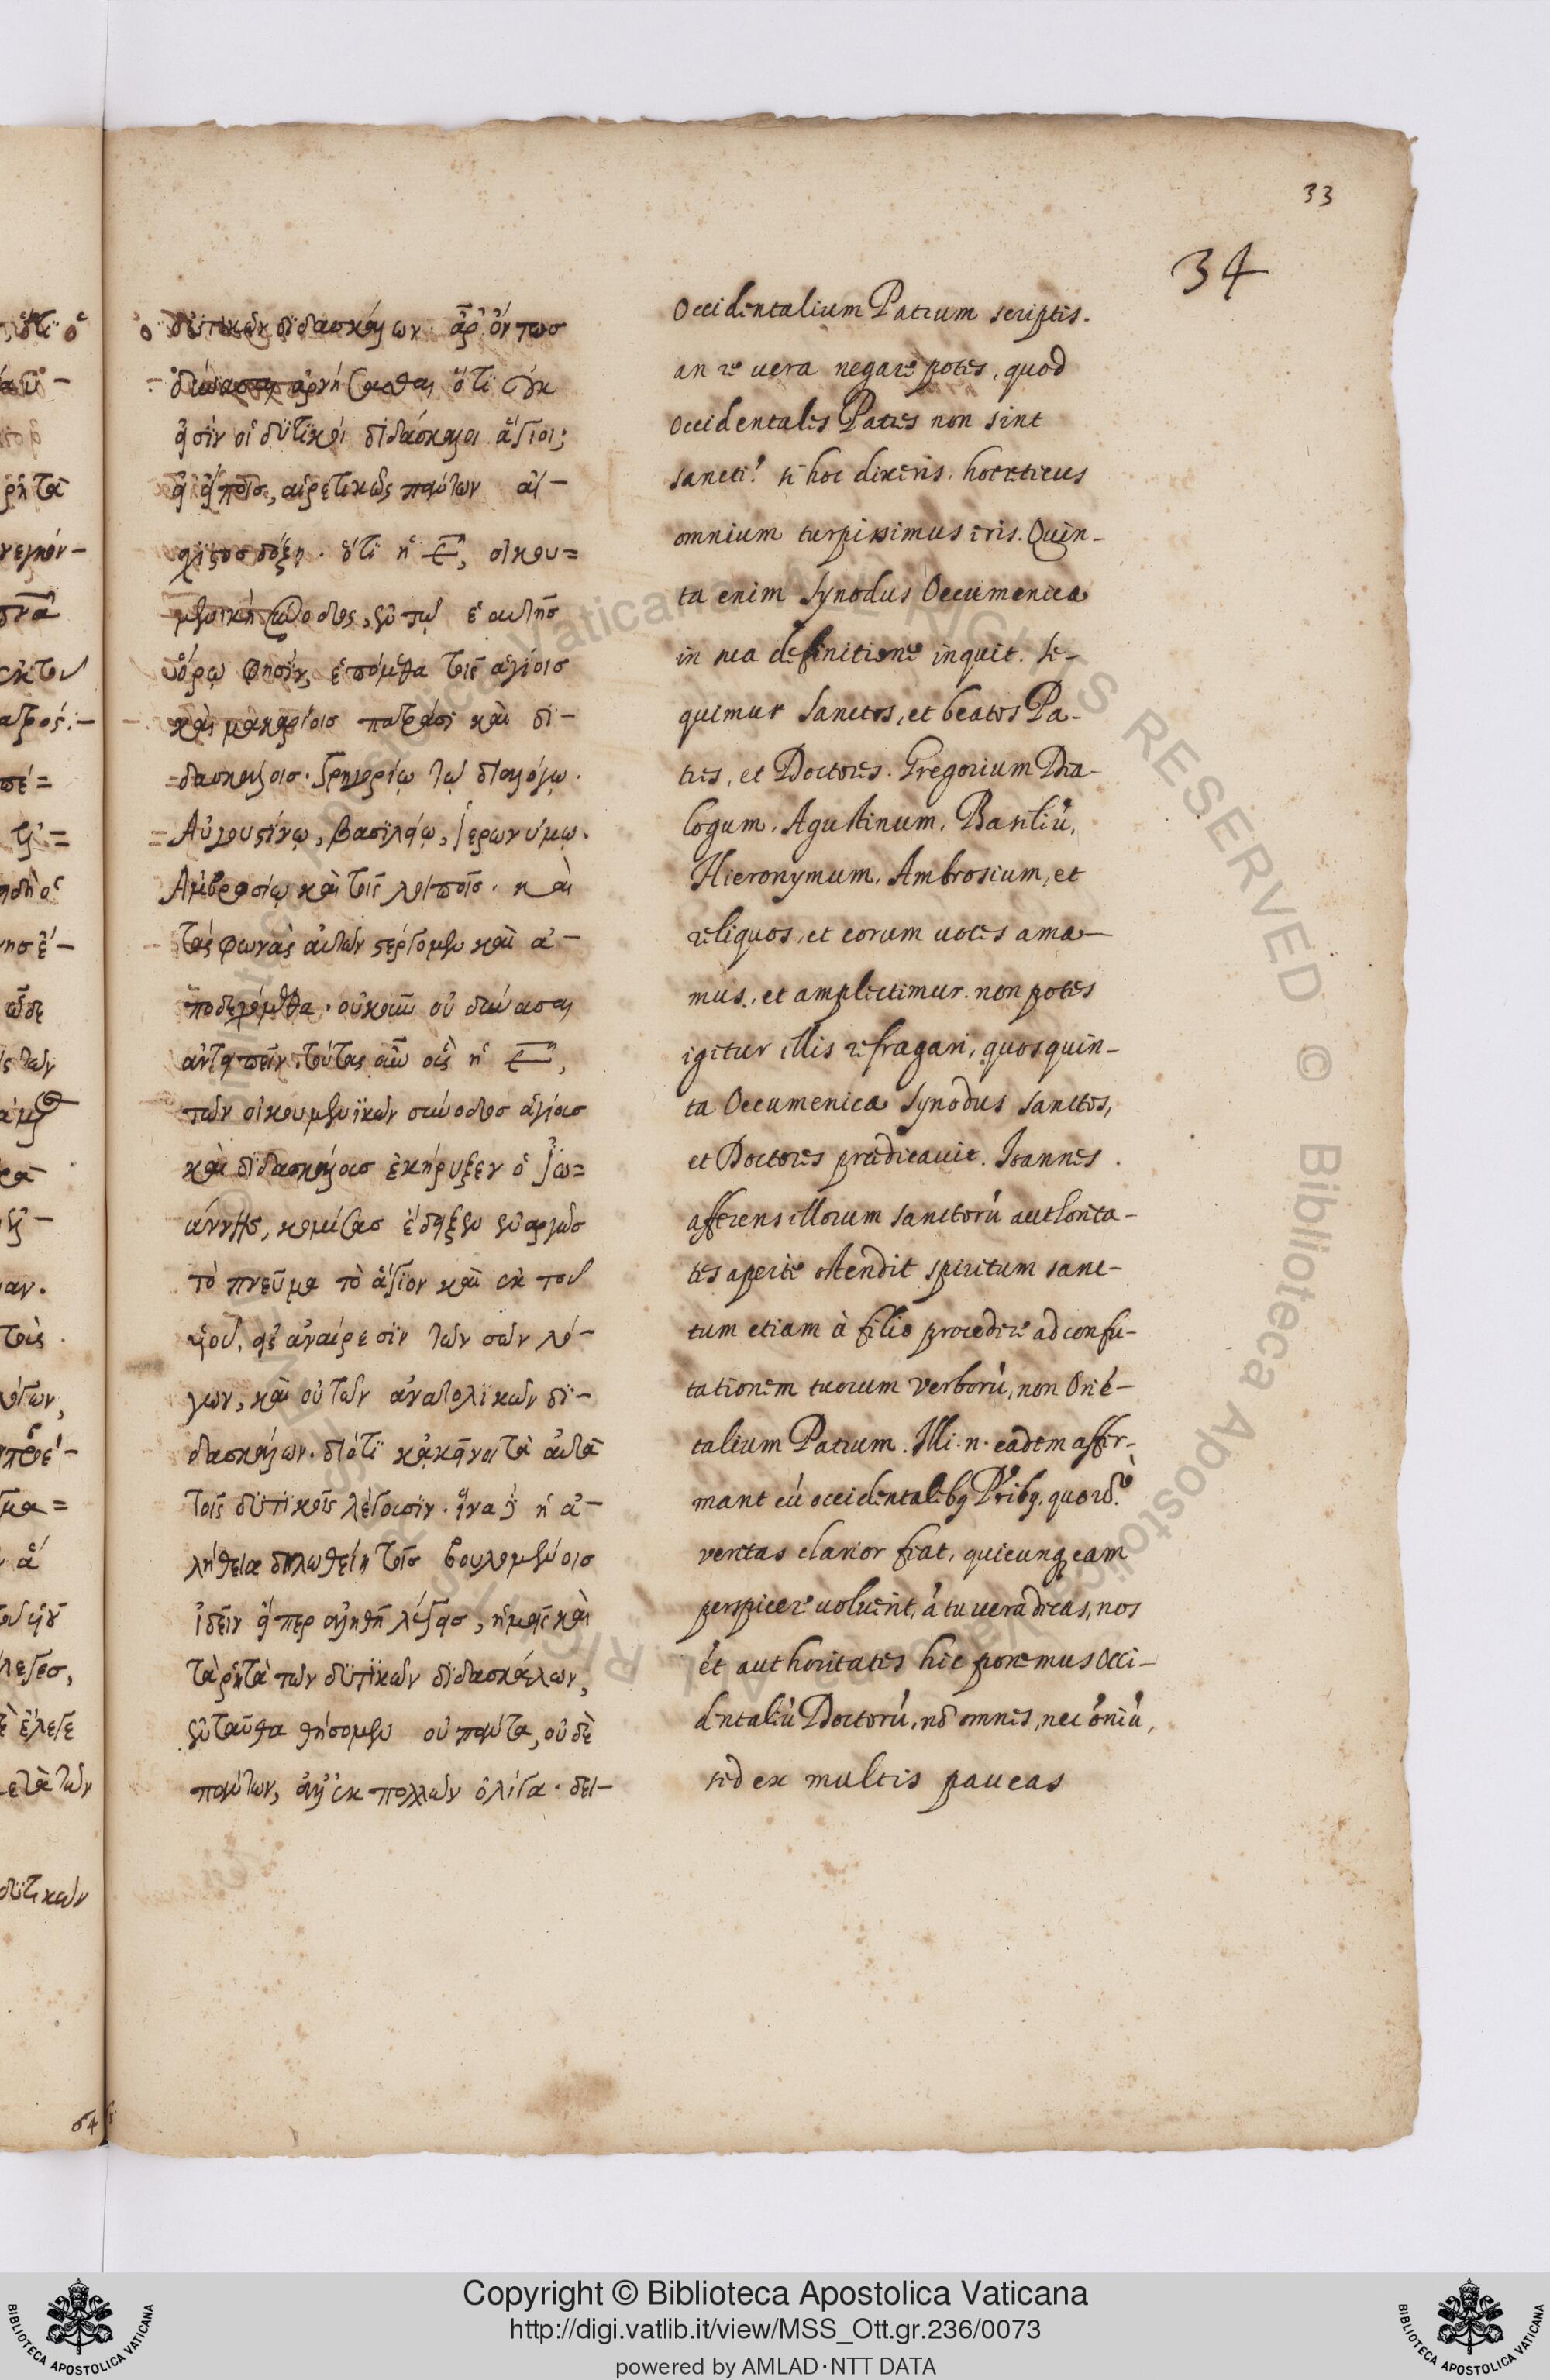 33
34
δϋτικῶν διδασκάλων· ἆρ' ὄντωσ
δύνασαι ἀρνήσασθαι ὅτι οὐκ
εἰσὶν οἱ δϋτϊκοὶ διδάσκαλοι ἅγιοι;
εἰ εἴποισ, αἱρετικῶς πάντων αἴ-
σχιστοσ δόξῃ. ὅτι ἡ ε, οἰκου=
μενικὴ σύνοδος, ἐν τῷ ἑαυτῆσ
ὅρῳ φησὶν, ἑπόμεθα τοῖς ἁγίοισ
καὶ μακαρίοισ πατράσι καὶ δι-
=δασκάλοισ. Γρηγορίῳ τῷ διαλόγῳ.
=Αὐγουστίνῳ, βασιλείῳ, ἱερωνύμῳ.
Ἀμβροσίῳ καὶ τοῖς λοιποῖσ. καὶ
τὰς φωνὰς αὐτῶν στέργομεν καὶ ἀ-
ποδεχόμεθα. οὐκοῦν οὐ δύνασαι
ἀντειπεῖν τούτοις οὓς ἡ ε,
τῶν οἰκουμενϊκῶν σύνοδοσ ἁγίουσ
καὶ διδασκάλουσ ἐκήρυξεν ὁ ἰω=
άννησ, κομίσασ ἔδειξεν ἐναργῶσ
τὸ πνεῦμα τὸ ἅγιον καὶ ἐκ τοῦ
υἱοῦ, εἰς ἀναίρεσϊν τῶν σῶν λό-
γων, καὶ οὐ τῶν ἀνατολϊκῶν δϊ-
δασκάλων. διότι κἀκεῖνοι τὰ αὐτὰ
τοῖς δϋτϊκοῖς λέγουσϊν. ἵνα δὲ ἡ ἀ-
λήθεια δηλωθείη τοῖσ βουλομένοισ
ἰδεῖν εἴπερ ἀληθῆ λέγεισ, ἡμεῖς καὶ
τὰ ῥητὰ τῶν δϋτϊκῶν διδασκάλων,
ἐνταῦθα θήσομεν οὐ πάντα, οὐδὲ
πάντων, ἀλλ' ἐκ πολλῶν ὀλίγα. δει-
Occidentalium Patrum scriptis.
an re uera negare potes, quod
occidentales Patres non sint
sancti? si hoc dixeris. hoereticus
omnium turpissimus eris. Quin-
ta enim Synodus Oecumenica
in sua definitione inquit. Se-
quimur Sanctos, et beatos Pa-
tres, et Doctores. Gregorium Dia-
logum, Agustinum, Basiliũ,
Hieronymum, Ambrosium, et
reliquos, et eorum uoces ama-
mus, et amplectimur. non potes
igitur illis refragari, quos quin-
ta Oecumenica Synodus sanctos,
et Doctores prædicauit. Ioannes
afferens illorum sanctorũ authorita-
tes aperte ostendit spiritum sanc-
tum etiam à filio procedere ad confu-
tationem tuorum verborũ, non Oriẽ-
talium Patrum. Illi .n. eadem affir-
mant cũ occidentalibq Pribq.
veritas clarior fiat, quicunq eam
perspicere uoluerit, à tu uera dicas, nos
et authoritates hic ponemus Occi-
dentaliũ Doctorũ, nõ omnes, nec oniũ,
sed ex multis paucas
Copyright © Biblioteca Apostolica Vaticana
http://digi.vatlib.it/view/MSS_Ott.gr.236/0073
powered by AMLAD·NTT DATA